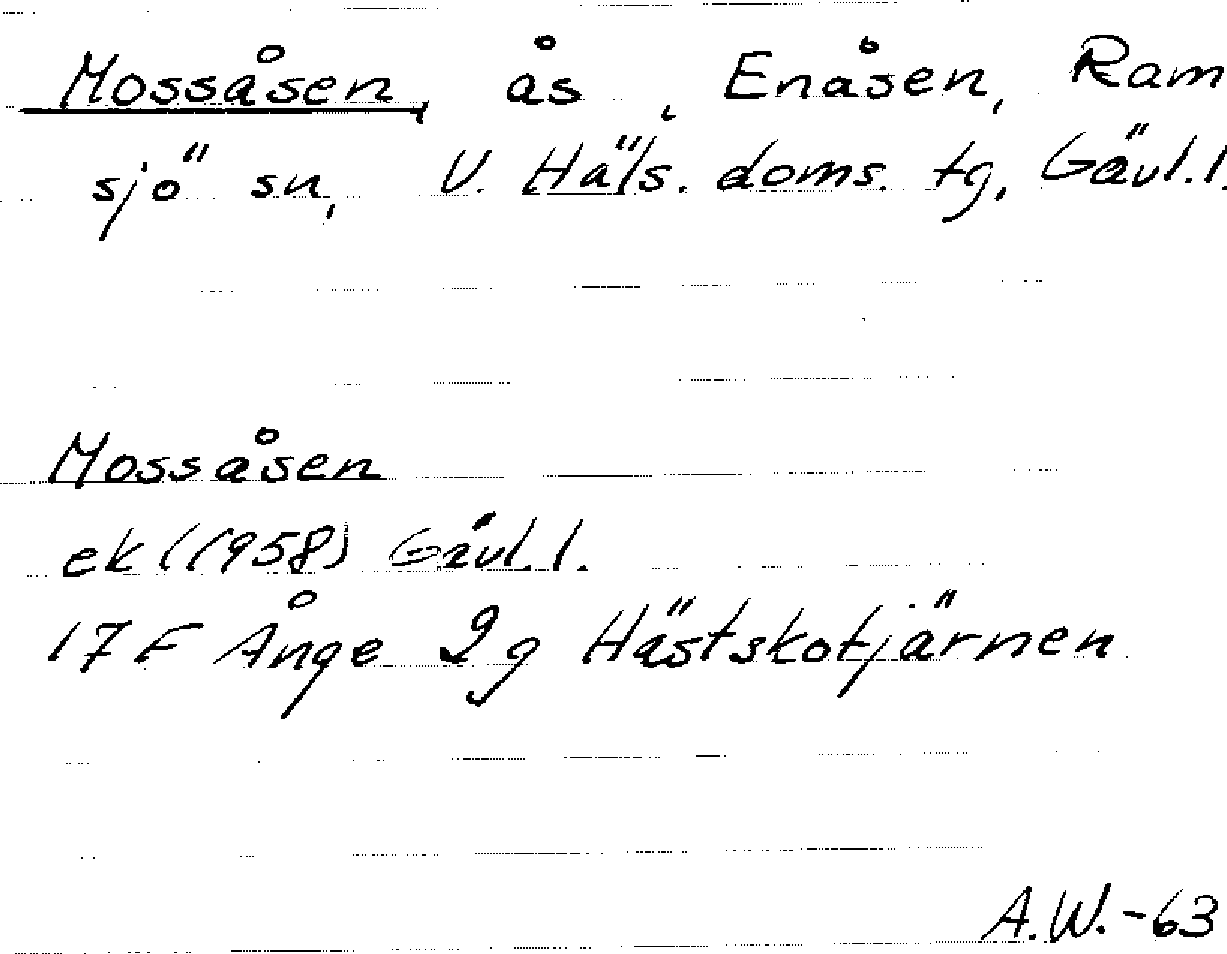 Mossåsen, ås, Enåsen, Ram
sjö sn, V. Häls. doms. tg, Gävl.l.
Mossåsen
ek (1958) Gävl.l.
17 F Ånge 2g Hästskotjärnen
A.W.-63